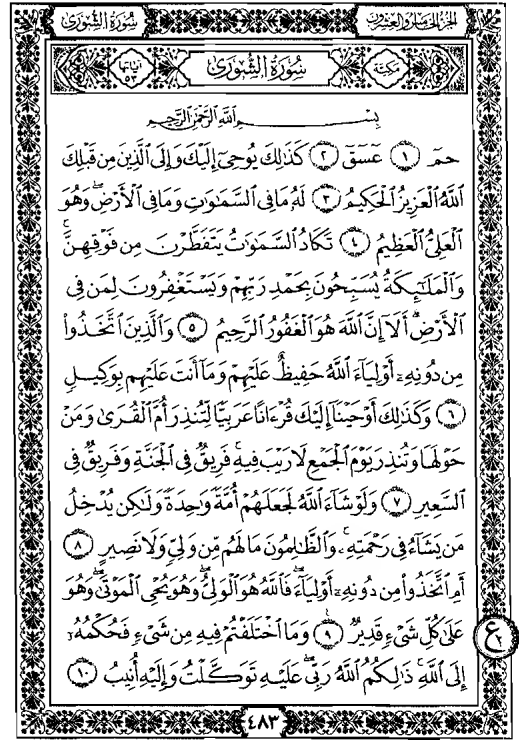 الجزء الخامس والعشرون
سورة الشورى
مكية
سورة الشورى
آياتها ٥٣
بِسْمِ ٱللَّهِ ٱلرَّحْمَٰنِ ٱلرَّحِيمِ
حمٓ ١ عٓسٓقٓ ٢ كَذَٰلِكَ يُوحِىٓ إِلَيْكَ وَإِلَى ٱلَّذِينَ مِن قَبْلِكَ
ٱللَّهُ ٱلْعَزِيزُ ٱلْحَكِيمُ ٣ لَهُۥ مَا فِى ٱلسَّمَٰوَٰتِ وَمَا فِى ٱلْأَرْضِ ۖ وَهُوَ
ٱلْعَلِىُّ ٱلْعَظِيمُ ٤ تَكَادُ ٱلسَّمَٰوَٰتُ يَتَفَطَّرْنَ مِن فَوْقِهِنَّ ۚ
وَٱلْمَلَٰٓئِكَةُ يُسَبِّحُونَ بِحَمْدِ رَبِّهِمْ وَيَسْتَغْفِرُونَ لِمَن فِى
ٱلْأَرْضِ ۗ أَلَآ إِنَّ ٱللَّهَ هُوَ ٱلْغَفُورُ ٱلرَّحِيمُ ٥ وَٱلَّذِينَ ٱتَّخَذُوا۟
مِن دُونِهِۦٓ أَوْلِيَآءَ ٱللَّهُ حَفِيظٌ عَلَيْهِمْ وَمَآ أَنتَ عَلَيْهِم بِوَكِيلٍ
٦ وَكَذَٰلِكَ أَوْحَيْنَآ إِلَيْكَ قُرْءَانًا عَرَبِيًّا لِّتُنذِرَ أُمَّ ٱلْقُرَىٰ وَمَنْ
حَوْلَهَا وَتُنذِرَ يَوْمَ ٱلْجَمْعِ لَا رَيْبَ فِيهِ ۚ فَرِيقٌ فِى ٱلْجَنَّةِ وَفَرِيقٌ فِى
ٱلسَّعِيرِ ٧ وَلَوْ شَآءَ ٱللَّهُ لَجَعَلَهُمْ أُمَّةً وَٰحِدَةً وَلَٰكِن يُدْخِلُ
مَن يَشَآءُ فِى رَحْمَتِهِۦ ۚ وَٱلظَّٰلِمُونَ مَا لَهُم مِّن وَلِىٍّ وَلَا نَصِيرٍ ٨
أَمِ ٱتَّخَذُوا۟ مِن دُونِهِۦٓ أَوْلِيَآءَ ۖ فَٱللَّهُ هُوَ ٱلْوَلِىُّ وَهُوَ يُحْىِ ٱلْمَوْتَىٰ وَهُوَ
عَلَىٰ كُلِّ شَىْءٍ قَدِيرٌ ٩ وَمَا ٱخْتَلَفْتُمْ فِيهِ مِن شَىْءٍ فَحُكْمُهُۥٓ
إِلَى ٱللَّهِ ۚ ذَٰلِكُمُ ٱللَّهُ رَبِّى عَلَيْهِ تَوَكَّلْتُ وَإِلَيْهِ أُنِيبُ ١٠
ع
٤٨٣